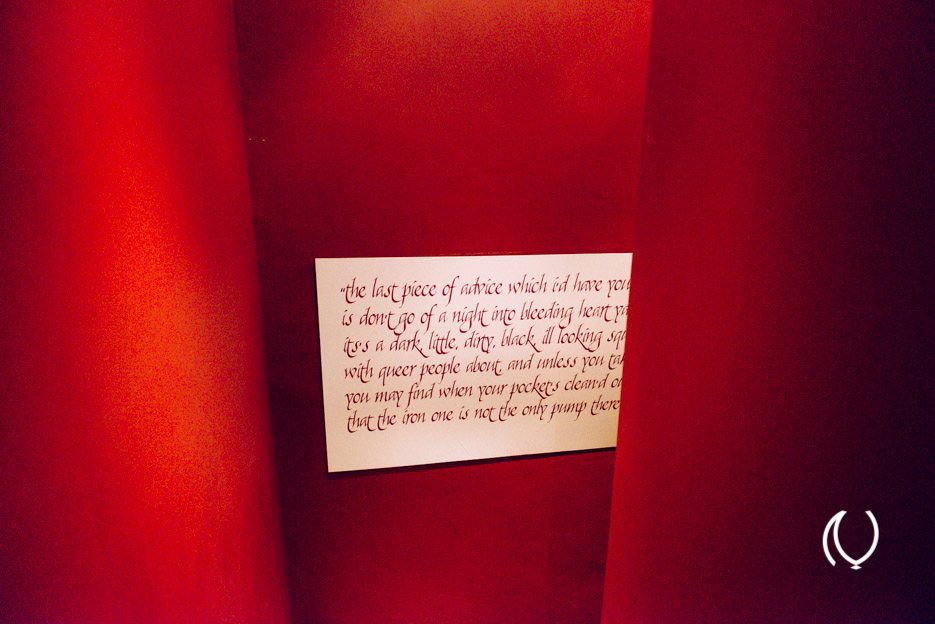 "the last piece of advice which i'd have you
is don't go of a night into bleeding heart ya
it's a dark, little, dirty, black, ill looking squ
with queer people about, and unless you tak
you may find when your pocket's clean'd o
that the iron one is not the only pump there